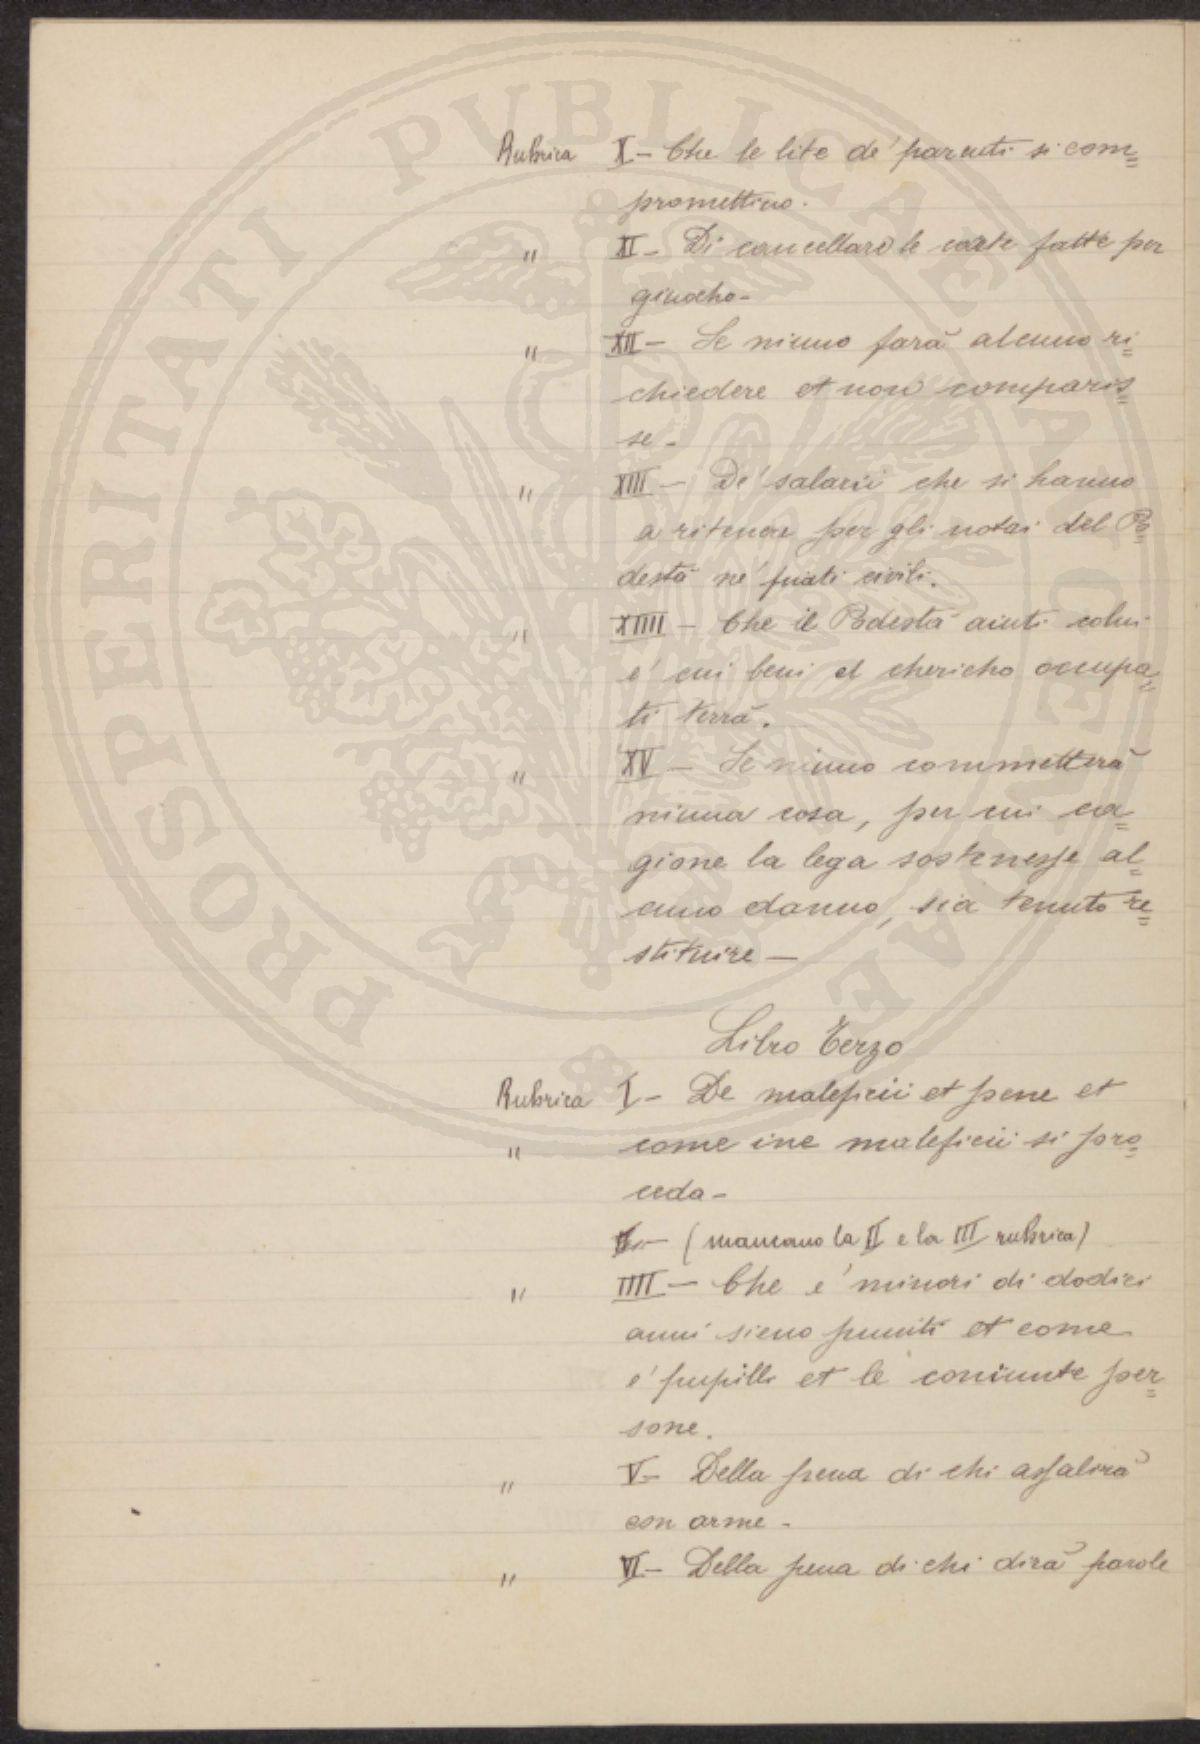 Rubrica X – Che le lite de' parenti si com=
promettino.
" XI – Di cancellare le carte fatte per
giuocho –
" XII – Se niuno farà alcuno ri=
chiedere et non comparis=
se –
" XIII – De' salarii che si hanno
a ritenere per gli notai del Po=
destà ne' piati civili.
" XIIII – Che il Podestà aiuti colui
e' cui beni el chericho occupa=
ti terrà.
" XV – Se niuno commetterà
niuna cosa, per cui ca=
gione la lega sostenesse al=
cuno danno, sia tenuto re=
stituire –
Libro Terzo
Rubrica I – De maleficii et pene et
" come ine maleficii si pro=
ceda –
– (mancano la II e la III rubrica)
" IIII – Che e' minori di dodici
anni sieno puniti et come
e' pupilli et le coniunte per=
sone.
" V – Della pena di chi assalirà
con arme –
" VI – Della pena di chi dirà parole
PROSPERITATI PVBLICAE AVGENDAE